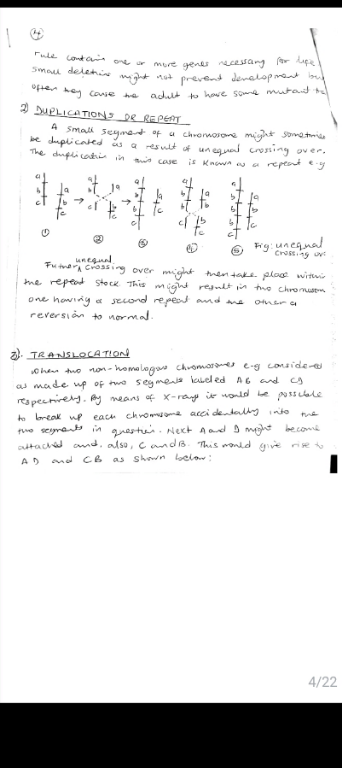 4
rule contain one or more genes necessary for life.
small deletions might not prevent development bu
often they cause the adult to have some mutant
2) DUPLICATIONS OR REPEAT
A small segment of a chromosome might sometimes
be duplicated as a result of unequal crossing over.
The duplication in this case is known as a repeat e.g
a a a a a a a a
b b b b b b b b
c c c c c c c c
① ② ③ ④ ⑤ Fig: unequal
crossing ov
unequal
Futher crossing over might then take place within
the repeat stock. This might result in two chromosom
one having a second repeat and the other a
reversion to normal.
3). TRANSLOCATION
When two non-homologus chromosomes e.g considered
as made up of two segments labeled AB and CD
respectively. By means of X-rays it would be possible
to break up each chromosome accidentally into the
two segments in question. Next A and D might become
attached and also, C and B. This would give rise to
AD and CB as shown below:
4/22